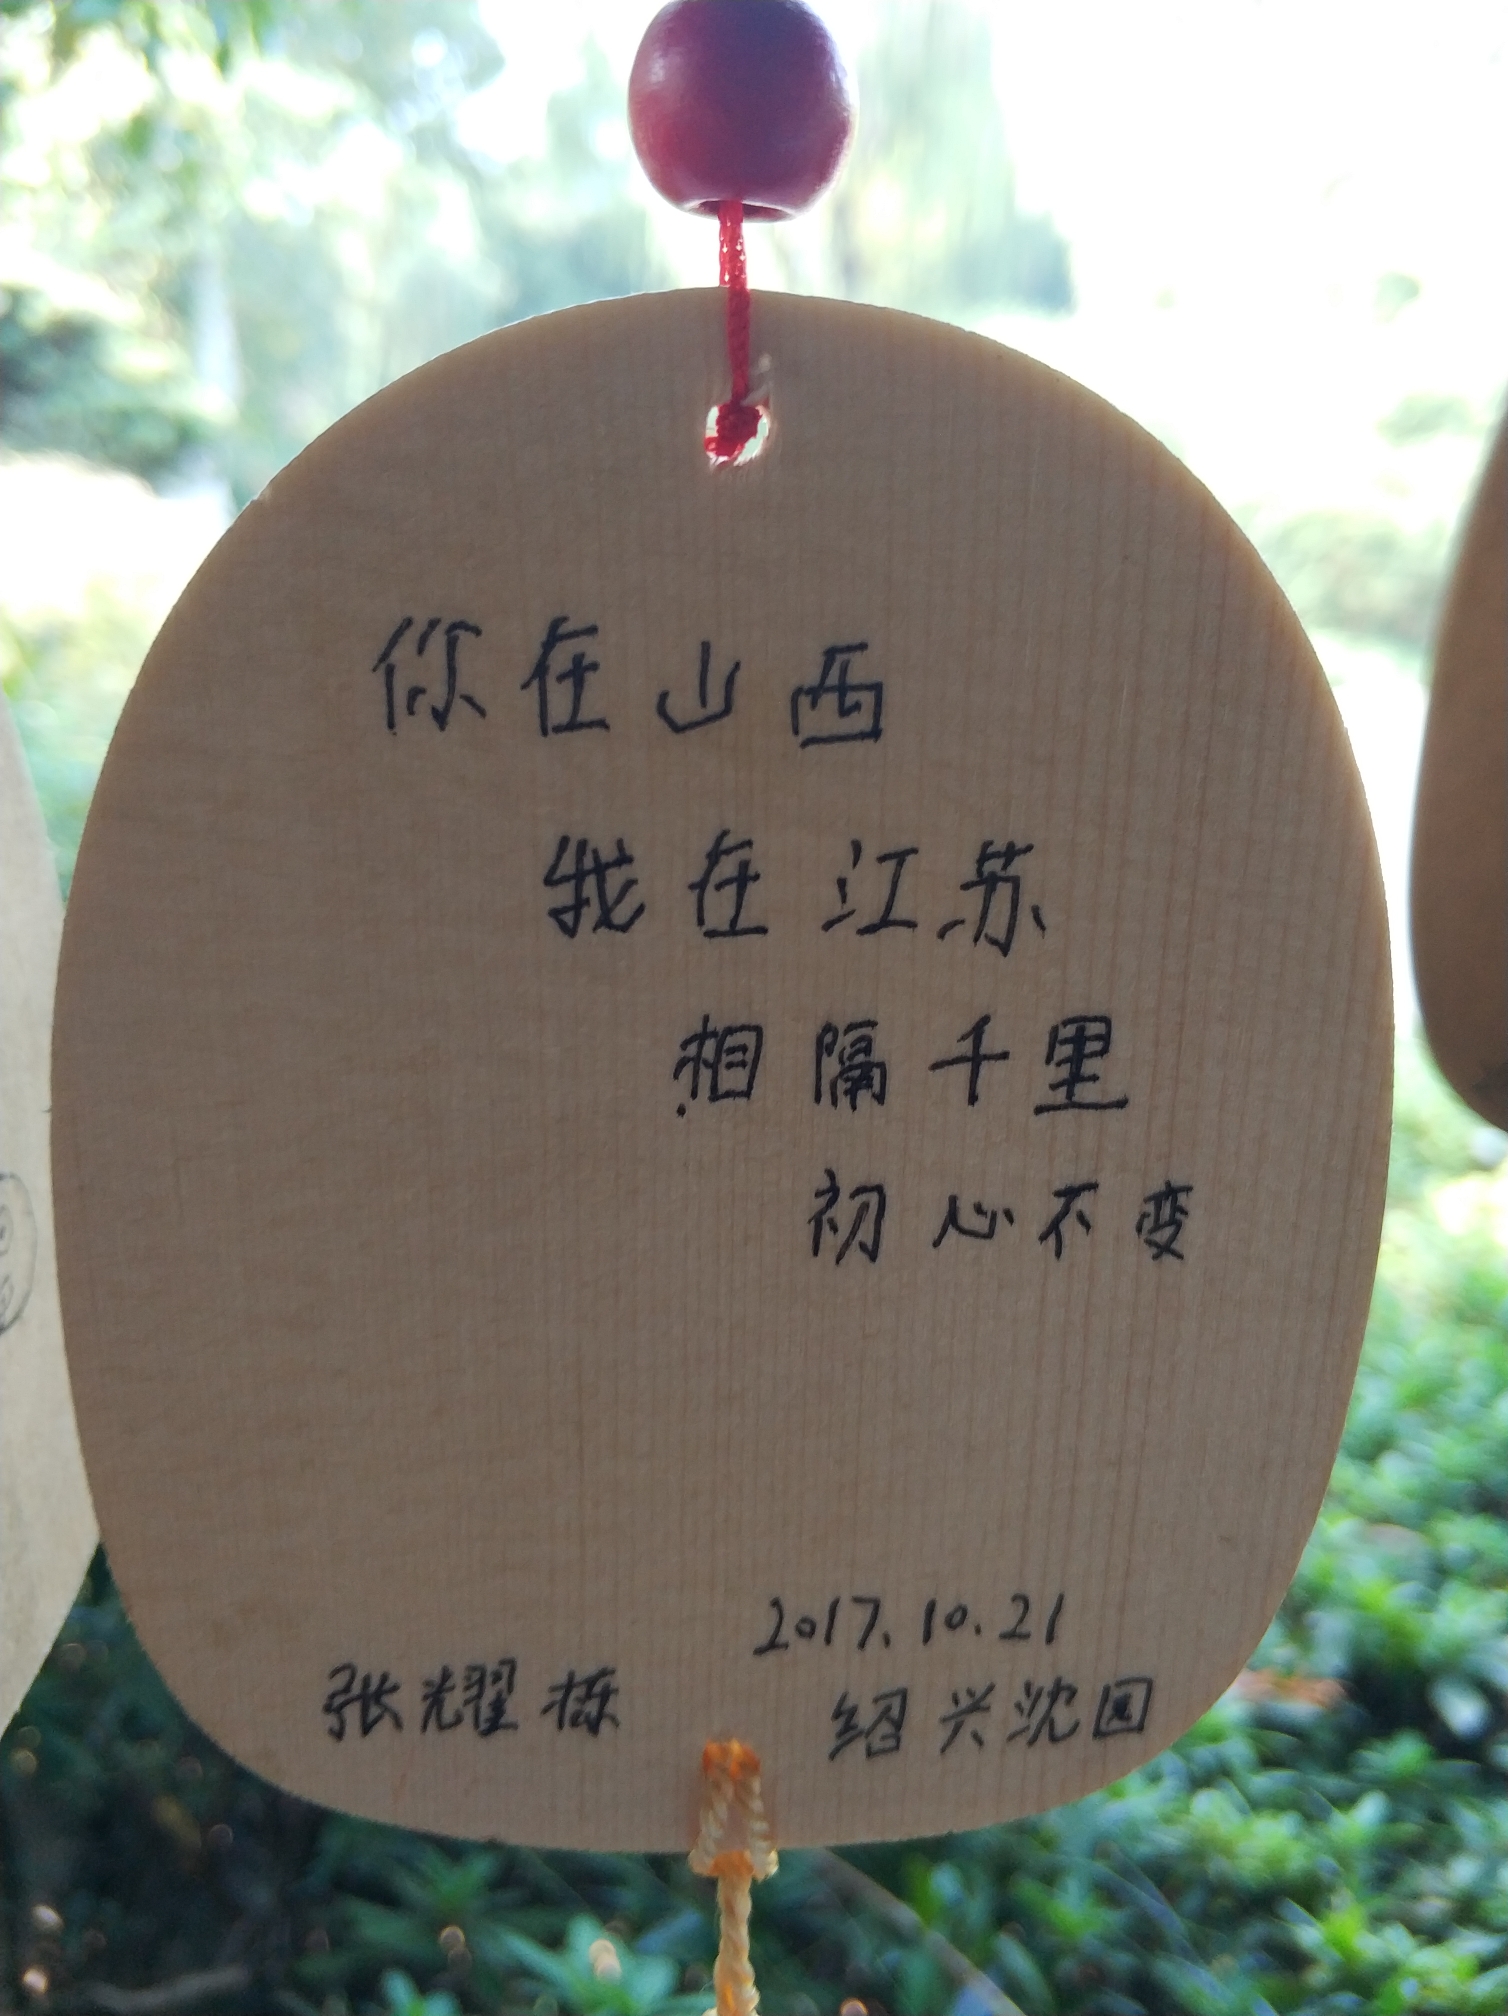 你在山西
我在江苏
相隔千里
初心不变
2017.10.21
张耀栋
绍兴沈园